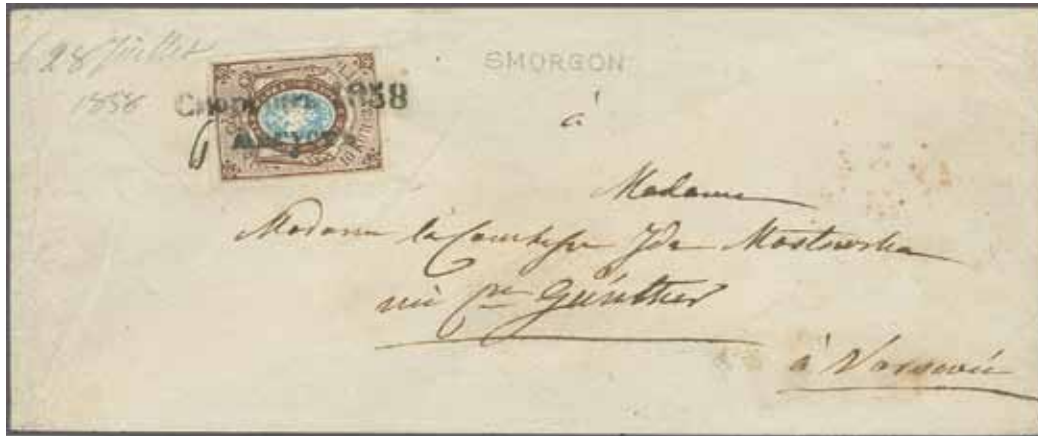 28 Juillet
1858
SMORGON
Сморгонь 1858
6 Августа
à
Madame
Madame la Comtesse Ida Mostowska
née Css Günther
à Varsovie